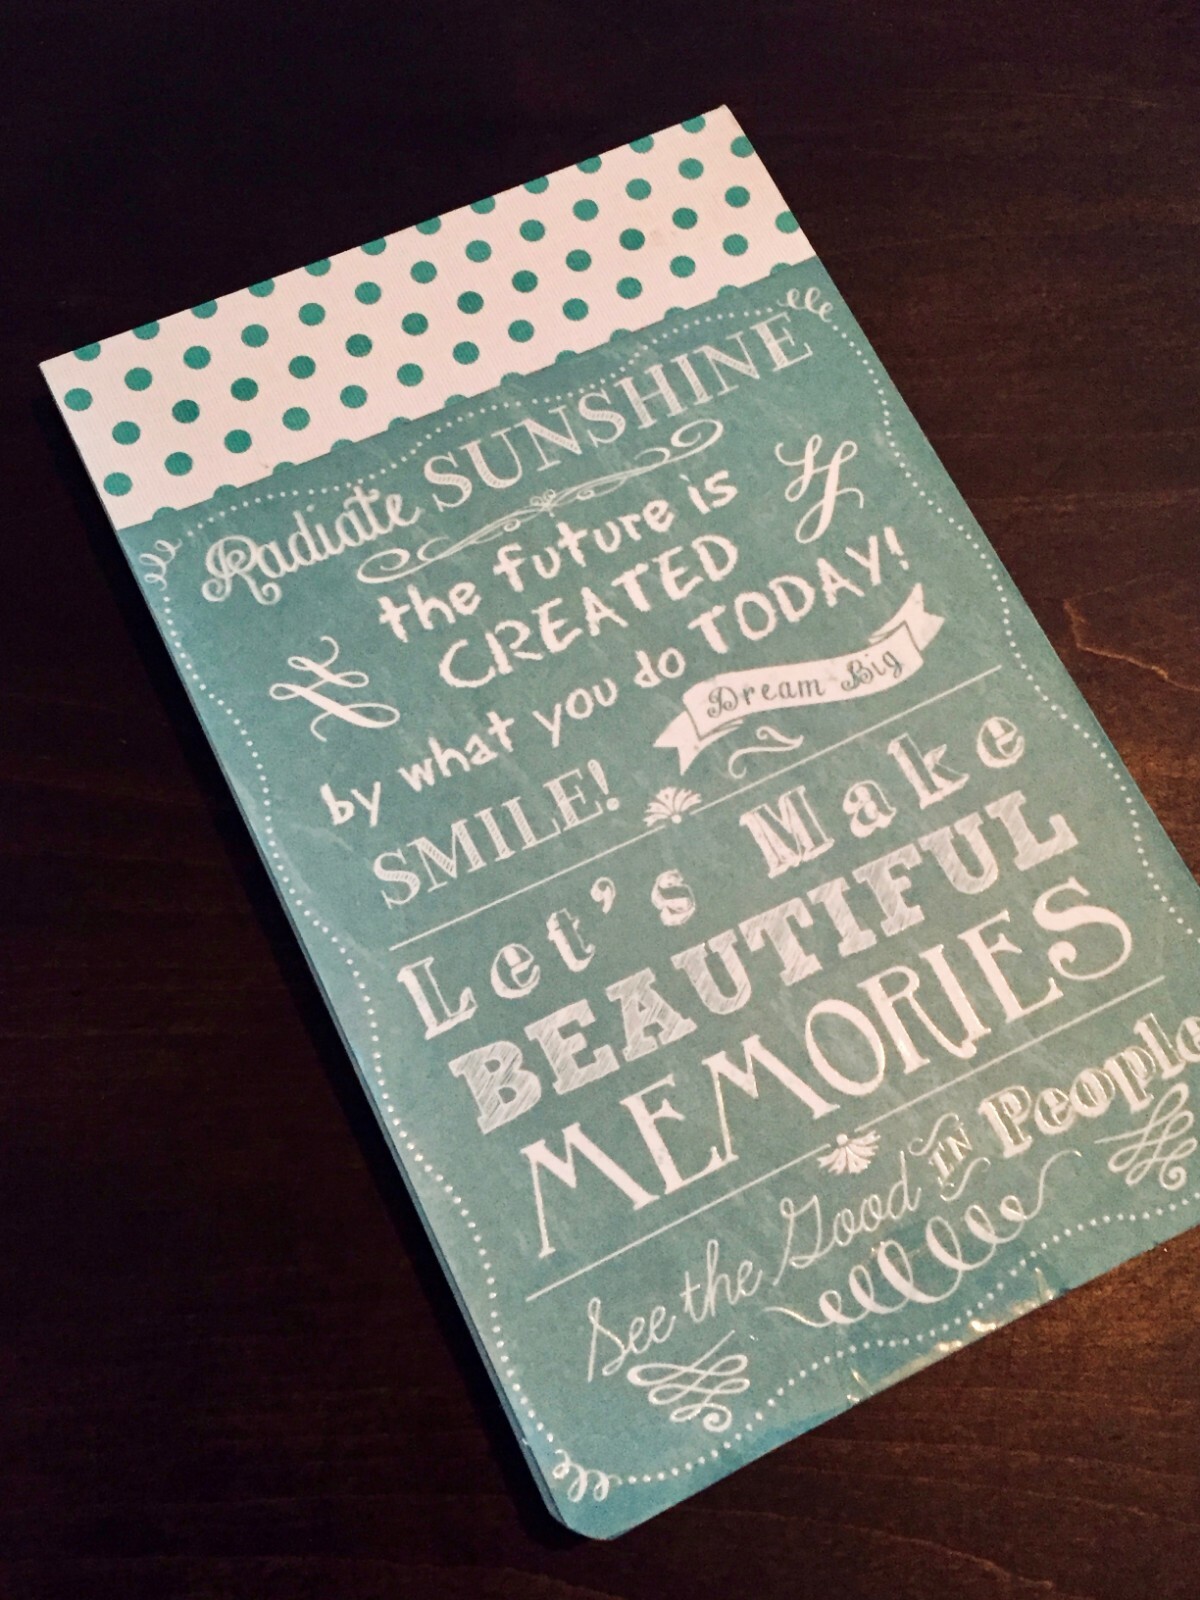 Radiate SUNSHINE
the future is
CREATED
by what you do TODAY!
SMILE!
Dream Big
Let's Make
BEAUTIFUL
MEMORIES
See the Good IN People